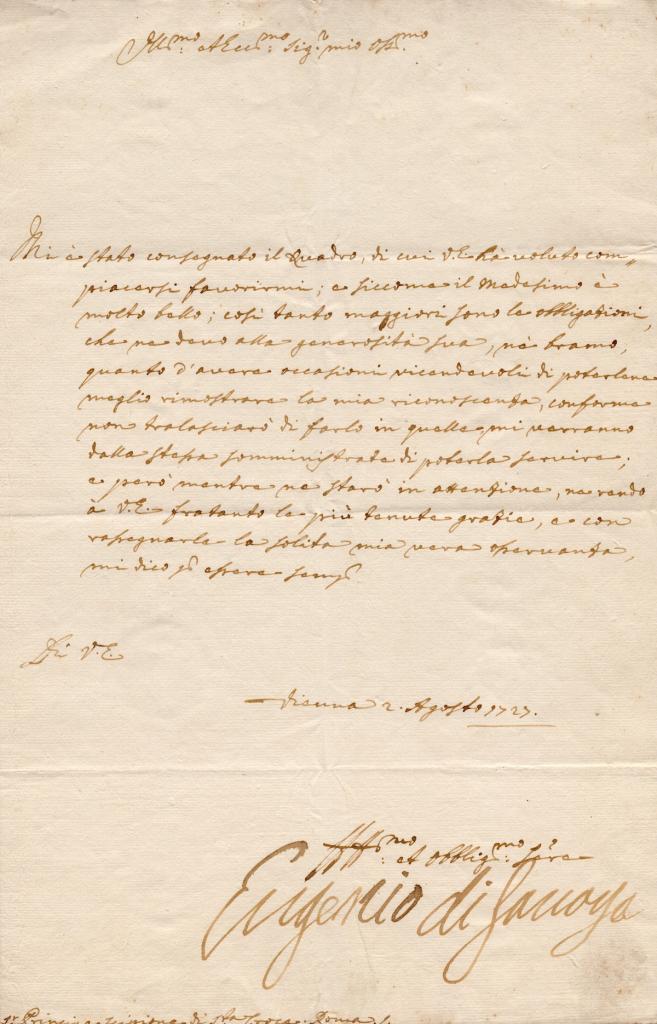 Ill.mo et Ecc.mo Sig.r mio oss.mo
Mi è stato consegnato il Quadro, di cui V.E. hà voluto com„
piacersi favorirmi; e siccome il Medesimo è
molto bello; così tanto maggiori sono le obbligazioni,
che ne devo alla generosità sua, nè bramo,
quanto d'avere occasioni vicendevoli di poterlene
meglio rimostrare la mia riconoscenza, conforme
non tralasciarò di farlo in quelle, mi verranno
dalla stessa somministrate di poterla servire;
e però mentre ne starò in attenzione, ne rendo
à V.E. fratanto le più tenute grazie, e con
rassegnarle la solita mia vera osservanza,
mi dico p. essere semp.
Di V.E.
Vienna 2. Agosto 1727.
Aff.mo et obblig.mo Ser.e
Eugenio di Savoya
S.r Principe Scipione di S.ta Croce. Roma